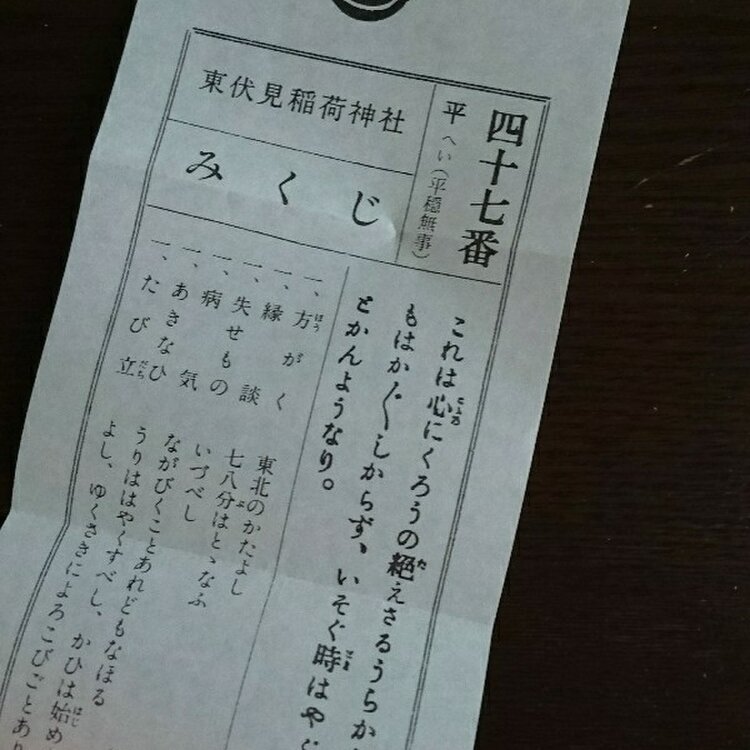 四十七番
平 へい(平穏無事)
東伏見稲荷神社
みくじ
これは心にくろうの絶えさるうらか
もはか〴〵しからず、いそぐ時はや
とかんようなり。
一、方がく 東北のかたよし
一、縁談 七八分はとゝなふ
一、失せもの いづべし
一、病気 ながびくことあれどもなほる
一、あきなひ うりははやくすべし、かひは始め
一、たび立 よし、ゆくさきによろこびごとあり